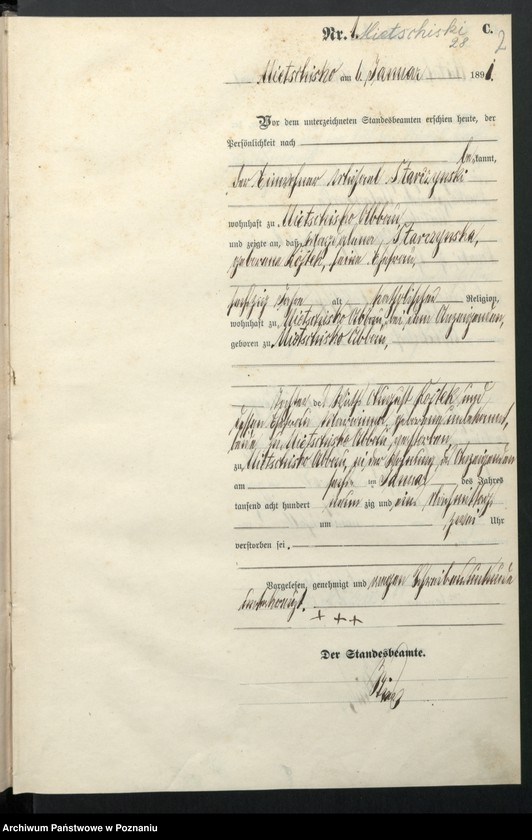 Nr. 1. Mietschiski C.
28 2
Mietschisko am 6. Januar 1891.
Vor dem unterzeichneten Standesbeamten erschien heute, der
Persönlichkeit nach
bekannt,
der Einwohner Michael Starzynski
wohnhaft zu Mietschisko Abbau,
und zeigte an, daß Magdalena Starzynska,
geborene Kostek, seine Ehefrau,
fünfzig Jahre alt, katholischer Religion,
wohnhaft zu Mietschisko Abbau, bei dem Anzeigenden,
geboren zu Mietschisko Abbau,
Tochter des August und
dessen Ehefrau Marianna, geborene unbekannt,
beide zu Mietschisko Abbau, gestorben,
zu Mietschisko Abbau, in der Wohnung des Anzeigenden
am Januar des Jahres
tausend acht hundert neun zig und ein, Nachmittags
um zwei Uhr
verstorben sei.
Vorgelesen, genehmigt und wegen Schreibensunkunde
unterkreuzt.
+ + +
Der Standesbeamte.
Archiwum Państwowe w Poznaniu